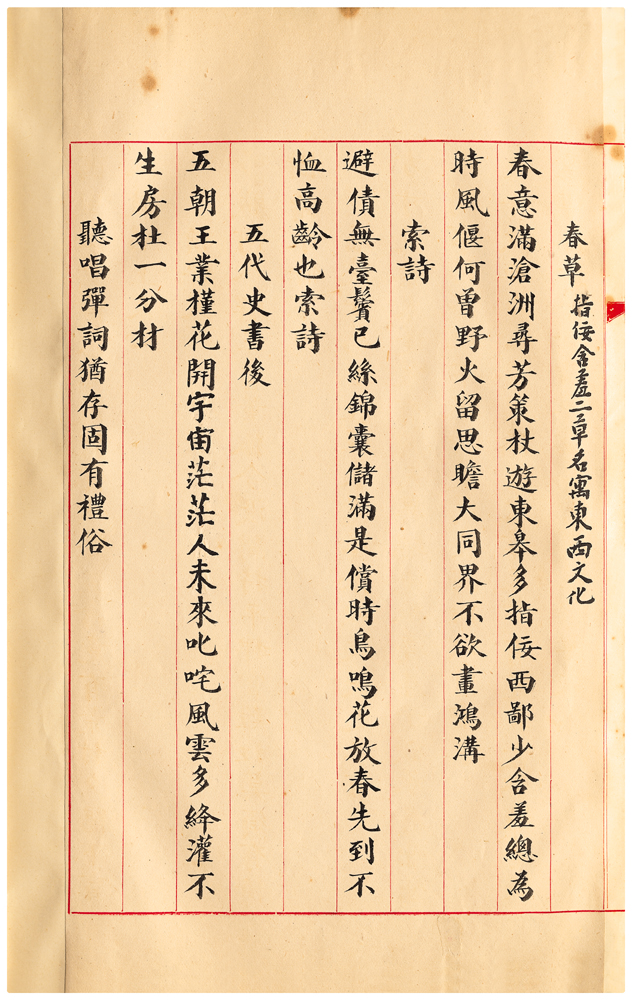 春草 指佞含羞二草名寓東西文化
春意滿滄洲尋芳策杖遊東皋多指佞西鄙少含羞總為
時風偃何曾野火留思瞻大同界不欲畫鴻溝
索詩
避債無臺鬢已絲錦囊儲滿是償時鳥鳴花放春先到不
恤高齡也索詩
五代史書後
五朝王業槿花開宇宙茫茫人未來叱咤風雲多絳灌不
生房杜一分材
聽唱彈詞猶存固有禮俗